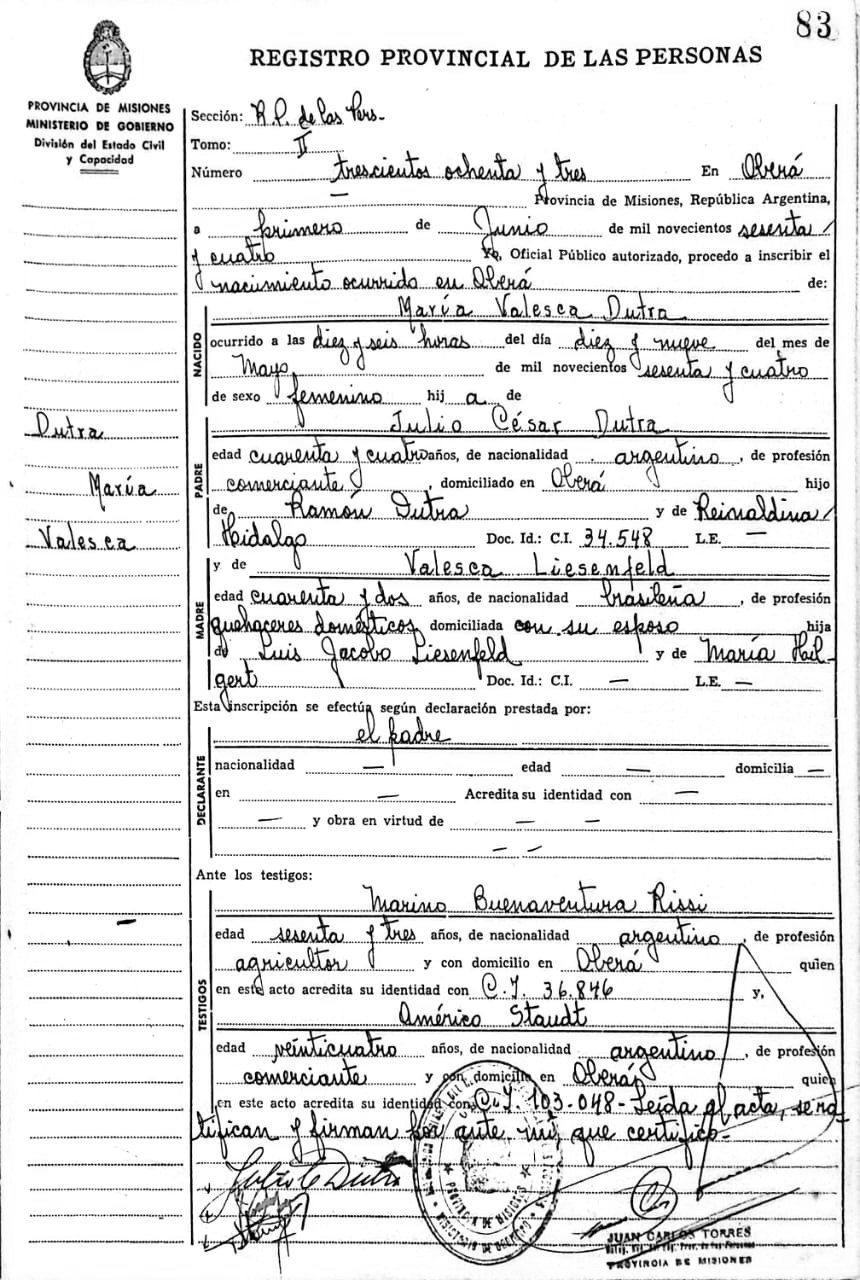 83
REGISTRO PROVINCIAL DE LAS PERSONAS
PROVINCIA DE MISIONES
MINISTERIO DE GOBIERNO
División del Estado Civil
y Capacidad
Dutra
María
Valesca
Sección: R.P. de las Pers-
Tomo: II
Número trescientos ochenta y tres En Oberá
— Provincia de Misiones, República Argentina,
a primero de Junio de mil novecientos sesenta /
y cuatro Yo, Oficial Público autorizado, procedo a inscribir el
nacimiento ocurrido en Oberá de:
NACIDO
María Valesca Dutra
ocurrido a las diez y seis horas del día diez y nueve del mes de
Mayo de mil novecientos sesenta y cuatro
de sexo femenino hij a de
PADRE
Julio César Dutra
edad cuarenta y cuatro años, de nacionalidad argentino, de profesión
comerciante, domiciliado en Oberá hijo
de Ramón Dutra y de Reinaldina /
Hidalgo Doc. Id.: C.I. 34.548 L.E. —
MADRE
y de Valesca Liesenfeld
edad cuarenta y dos años, de nacionalidad brasileña, de profesión
quehaceres domésticos domiciliada con su esposo hija
de Luis Jacobo Liesenfeld y de María Heil-
gert Doc. Id.: C.I. — L.E. —
Esta inscripción se efectúa según declaración prestada por:
DECLARANTE
el padre
nacionalidad — edad — domicilia —
en — Acredita su identidad con —
— y obra en virtud de — —
— —
Ante los testigos:
TESTIGOS
Marino Buenaventura Rissi
edad sesenta y tres años, de nacionalidad argentino, de profesión
agricultor y con domicilio en Oberá quien
en este acto acredita su identidad con C.I. 36.846 y,
Américo Staudt
edad veinticuatro años, de nacionalidad argentino, de profesión
comerciante y con domicilio en Oberá quien
en este acto acredita su identidad con C.I. 103-048- Leída el acta, se ra
tifican y firman por ante mí que certifico-
Julio C Dutra
PROVINCIA DE MISIONES
MINISTERIO DE GOBIERNO
JUAN CARLOS TORRES
PROVINCIA DE MISIONES